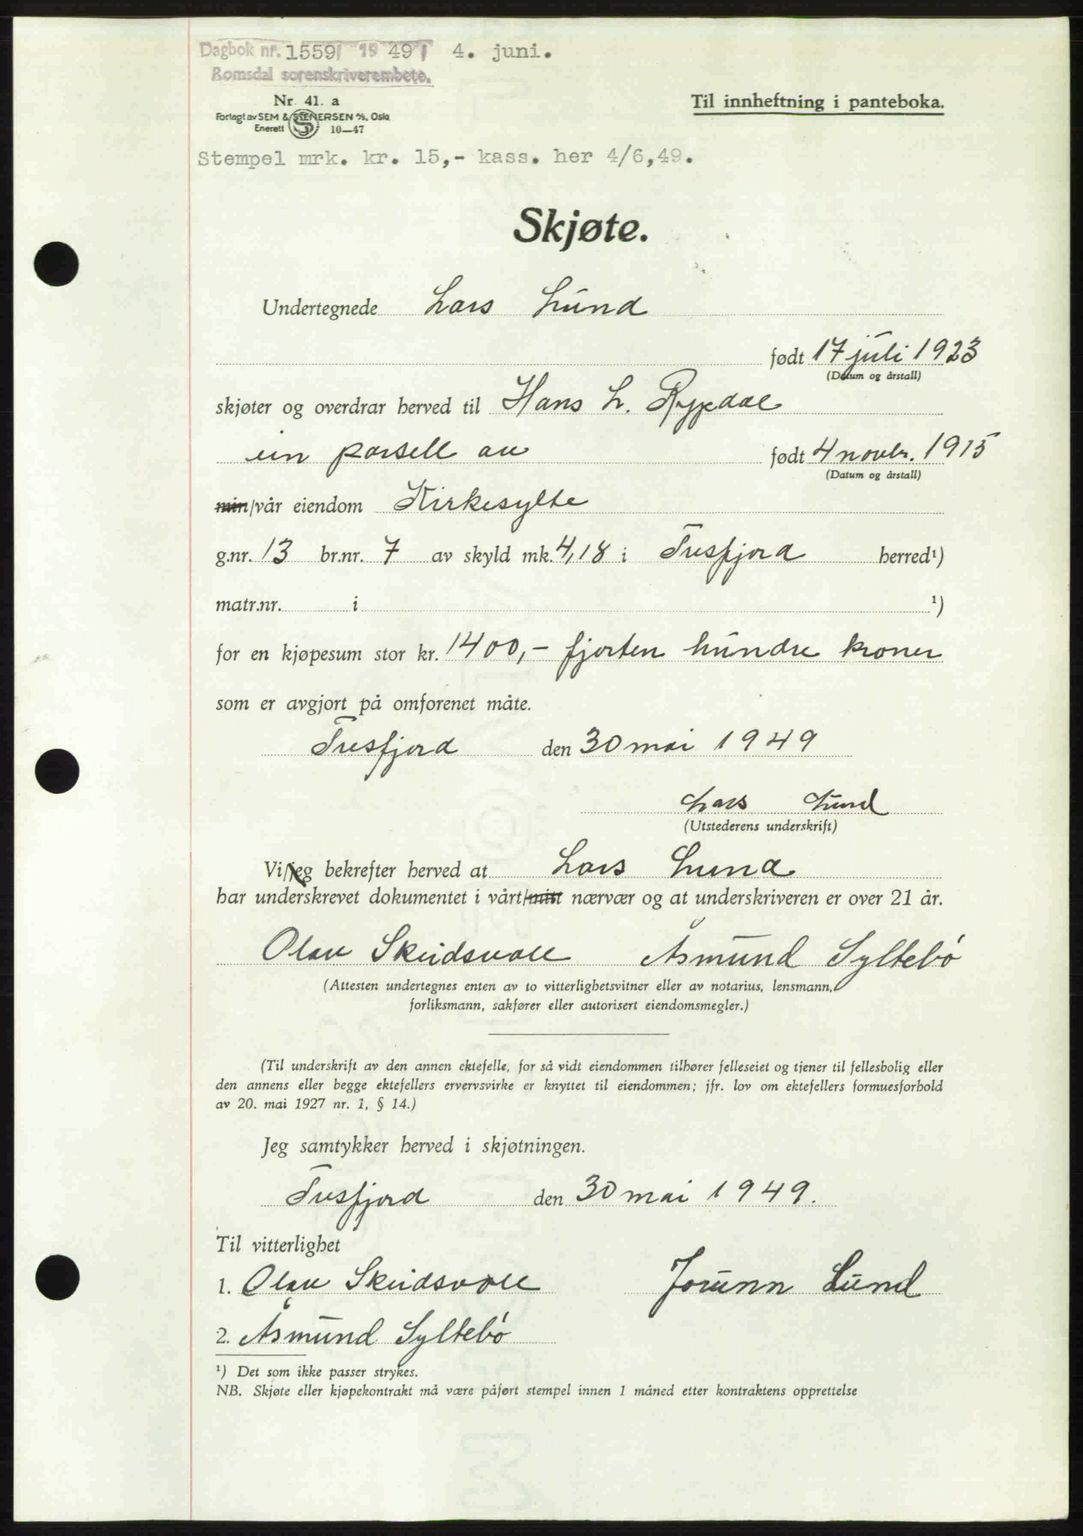 Dagbok nr. 1559/ 19 49/ 4. juni.
Romsdal sorenskriverembete.
Nr. 41. a
Forlagt av SEM & STENERSEN A/S, Oslo
Enerett 10—47
Til innheftning i panteboka.
Stempel mrk. kr. 15,- kass. her 4/6,49.
Skjøte.
Undertegnede Lars Lund
født 17 juli 1923
(Datum og årstall)
skjøter og overdrar herved til Hans L. Rypdal
ein parsell av født 4 novbr. 1915
(Datum og årstall)
min/vår eiendom Kirkesylte
g.nr. 13 br.nr. 7 av skyld mk. 4,18 i Tresfjord herred¹)
matr.nr. i ¹)
for en kjøpesum stor kr. 1400,- fjorten hundre kroner
som er avgjort på omforenet måte.
Tresfjord den 30 mai 1949
Lars Lund
(Utstederens underskrift)
Vi/jeg bekrefter herved at Lars Lund
har underskrevet dokumentet i vårt/mitt nærvær og at underskriveren er over 21 år.
Olav Skeidsvoll Åsmund Syltebø
(Attesten undertegnes enten av to vitterlighetsvitner eller av notarius, lensmann,
forliksmann, sakfører eller autorisert eiendomsmegler.)
(Til underskrift av den annen ektefelle, for så vidt eiendommen tilhører felleseiet og tjener til fellesbolig eller
den annens eller begge ektefellers ervervsvirke er knyttet til eiendommen; jfr. lov om ektefellers formuesforhold
av 20. mai 1927 nr. 1, § 14.)
Jeg samtykker herved i skjøtningen.
Tresfjord den 30 mai 1949.
Til vitterlighet
1. Olav Skeidsvoll Jorunn Lund
2. Åsmund Syltebø
¹) Det som ikke passer strykes.
NB. Skjøte eller kjøpekontrakt må være påført stempel innen 1 måned etter kontraktens opprettelse